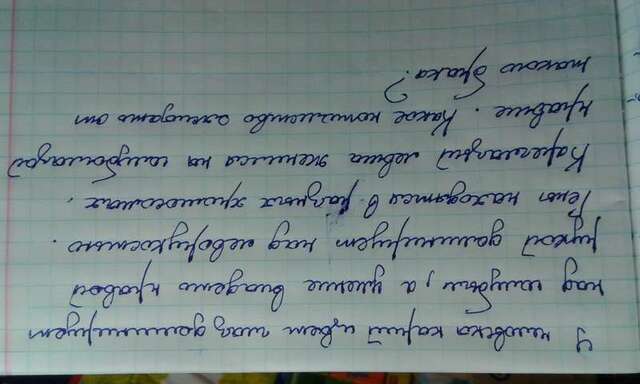 У человека карий цвет глаз доминирует
над голубым, а умение владеть правой
рукой доминирует над леворукостью.
Гены находятся в разных хромосомах.
Кареглазый левша женился на голубоглазой
правше. Какое потомство ожидать от
такого брака?